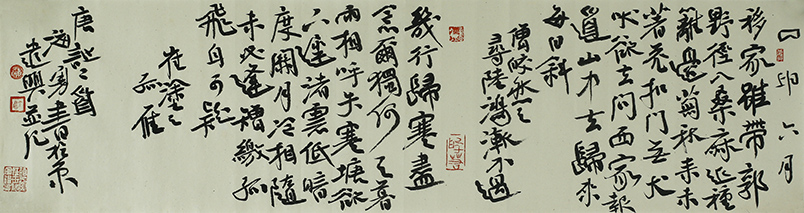 卯六月
移家雖帶郭
野徑入桑麻近種
籬邊菊秋來未
著花扣門無犬
吠欲去問西家報
道山中去歸來
每日斜
唐皎然之
尋陸鴻漸不遇
幾行歸塞盡
念爾獨何之暮
雨相呼失寒塘欲
下遲渚雲低暗
度關月冷相隨
未必逢矰繳孤
飛自可疑
崔塗之
孤雁
唐詩二首